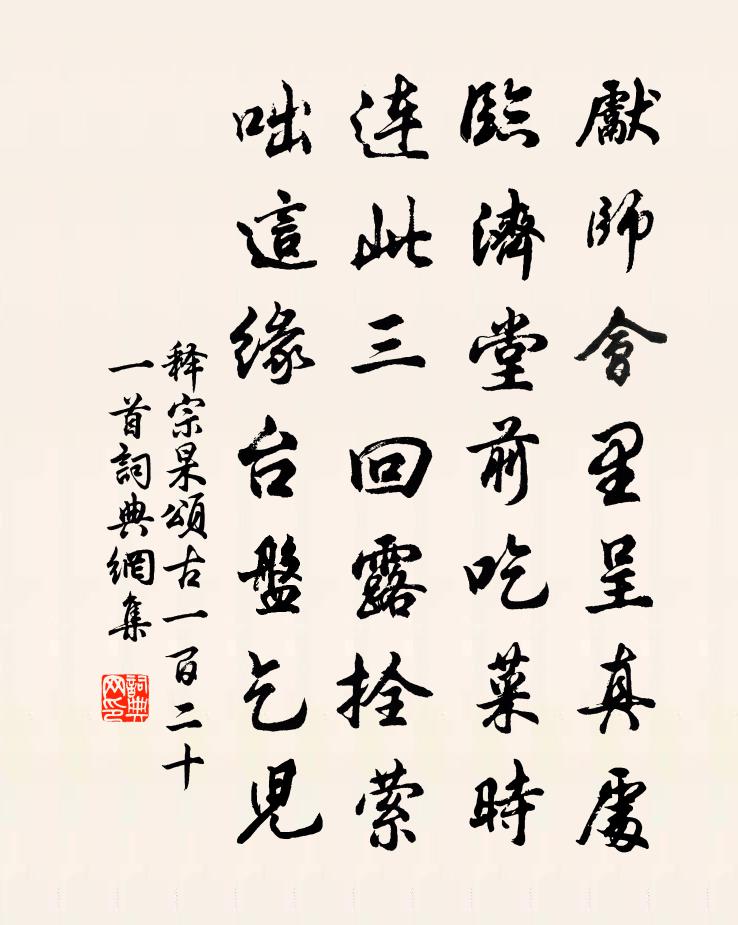 獻師會里呈真處
臨濟堂前吃菜時
連此三回露拴索
咄這緣台盤乞兒
释宗杲頌古一百二十
一首詞典網集
詞典网印